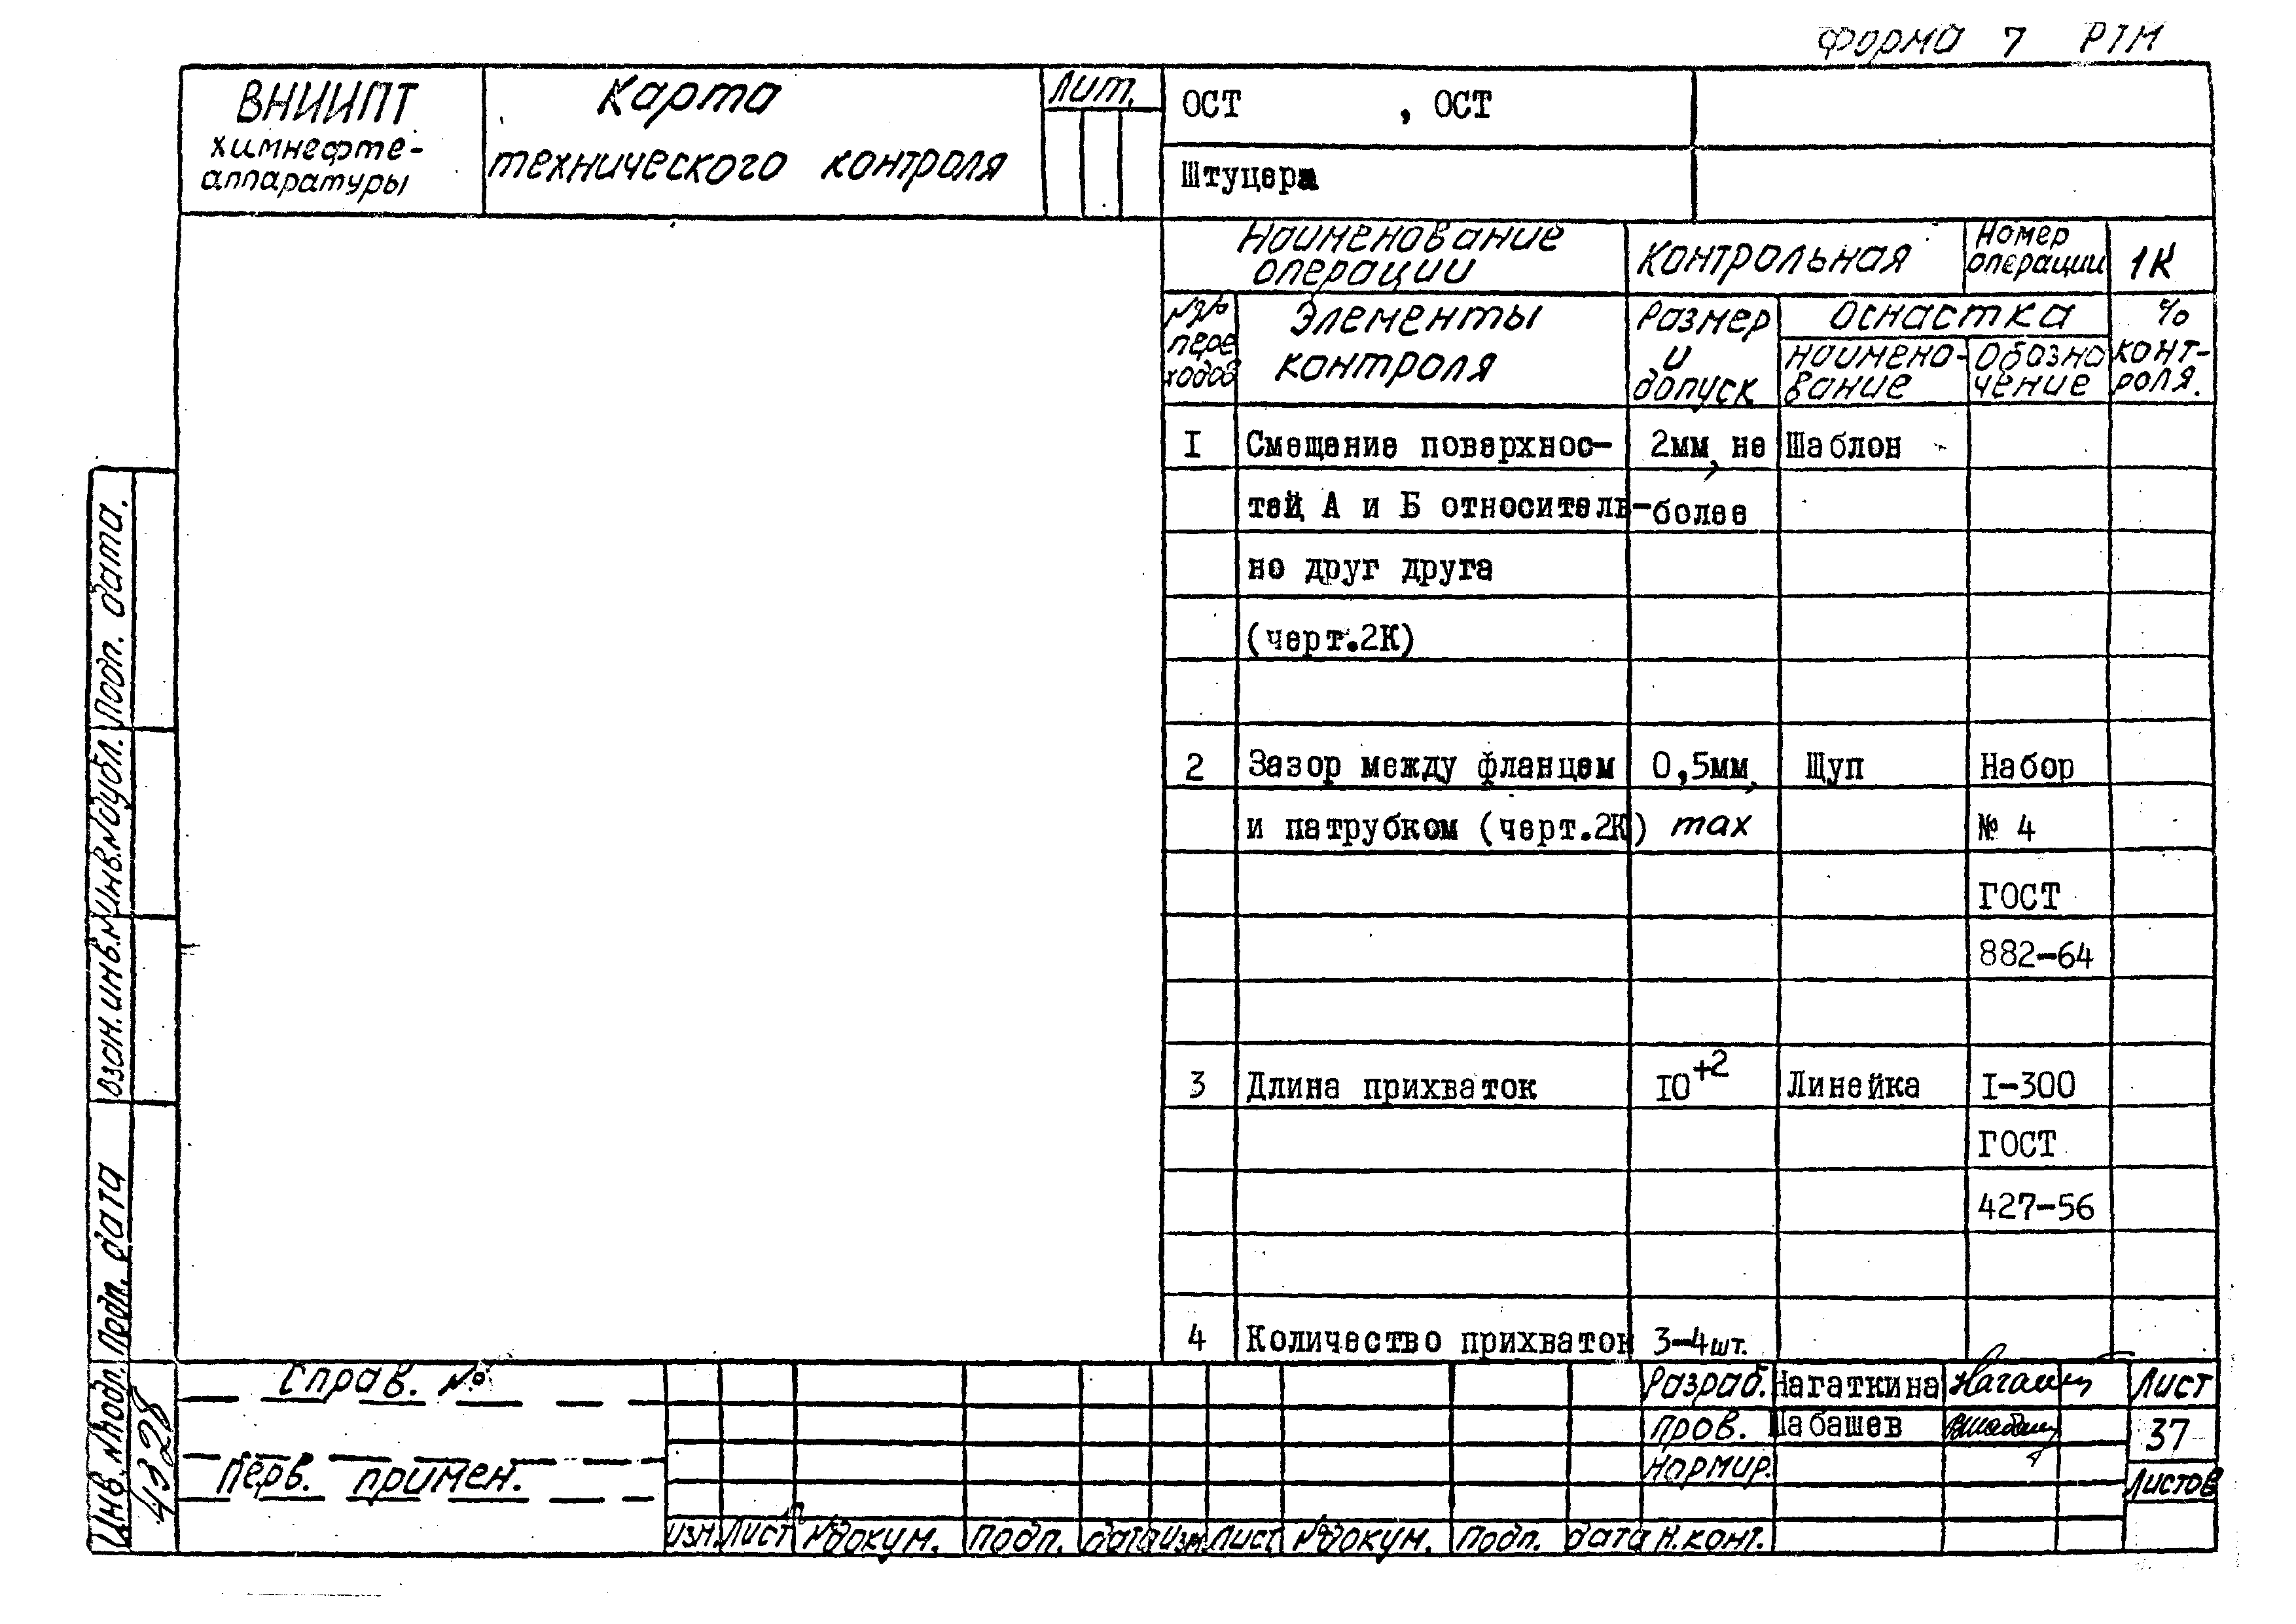 Форма 7 РТМ
ВНИИПТ
химнефте-
аппаратуры
Карта
технического контроля
Лит.
ОСТ , ОСТ
Штуцера
Наименование
операции
Контрольная
Номер
операции
1К
№№
пере
ходов
Элементы
контроля
Размер
и
допуск
Оснастка
Наимено-
вание
Обозна
чение
%
конт-
роля.
I Смещение поверхнос- 2мм, не Шаблон
тей А и Б относитель- более
но друг друга
(черт.2К)
2 Зазор между фланцем 0,5мм, Щуп Набор
и патрубком (черт.2К) max № 4
ГОСТ
882-64
3 Длина прихваток 10+2 Линейка I-300
ГОСТ
427-56
4 Количество прихваток 3-4шт.
Подп. дата.
Инв.№дубл.
Взам.инв.№
Подп. дата
Инв.№подл.
4328
Справ. №
Перв. примен.
Разраб. Нагаткина
Пров. Шабашев
Нормир.
Н.конт.
Лист
37
Листов
Изм. Лист №докум. Подп. Дата Изм. Лист №докум. Подп. Дата